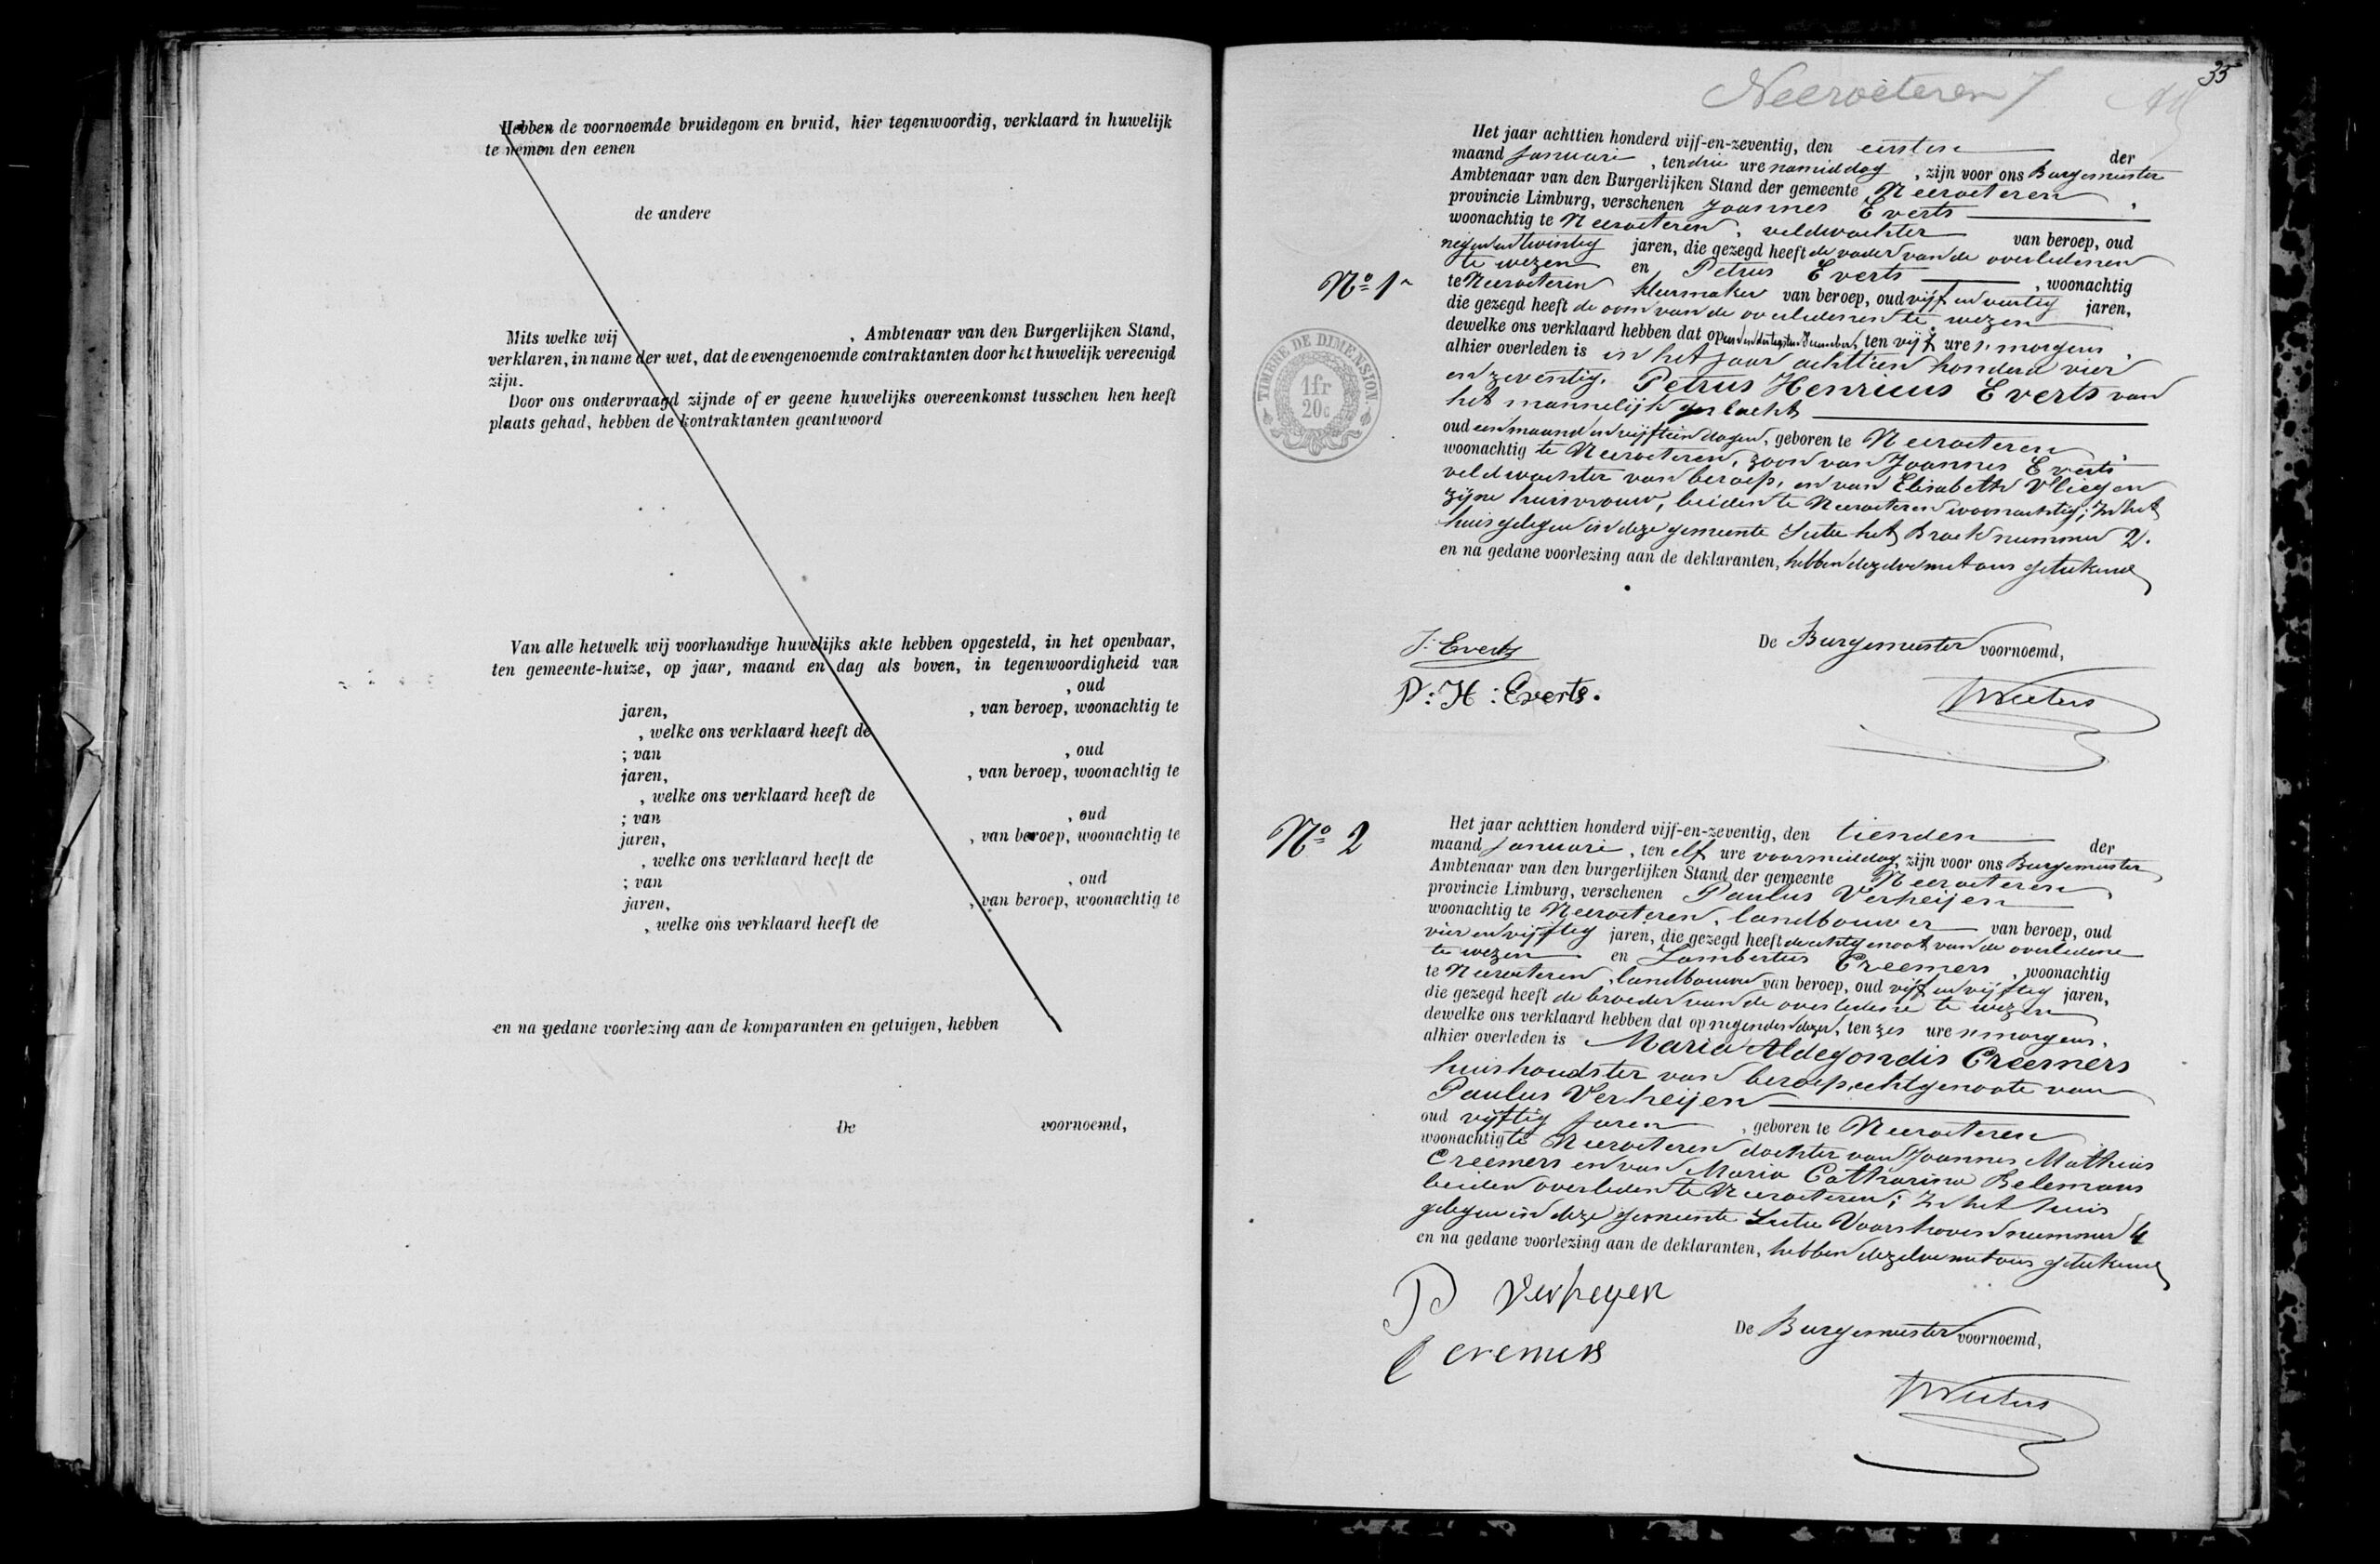 Hebben de voornoemde bruidegom en bruid, hier tegenwoordig, verklaard in huwelijk
te nemen den eenen
de andere
Mits welke wij , Ambtenaar van den Burgerlijken Stand,
verklaren, in name der wet, dat de evengenoemde contraktanten door het huwelijk vereenigd
zijn.
Door ons ondervraagd zijnde of er geene huwelijks overeenkomst tusschen hen heeft
plaats gehad, hebben de kontraktanten geantwoord
Van alle hetwelk wij voorhandige huwelijks akte hebben opgesteld, in het openbaar,
ten gemeente-huize, op jaar, maand en dag als boven, in tegenwoordigheid van
, oud
jaren, , van beroep, woonachtig te
, welke ons verklaard heeft de
; van , oud
jaren, , van beroep, woonachtig te
, welke ons verklaard heeft de
; van , oud
jaren, , van beroep, woonachtig te
, welke ons verklaard heeft de
; van , oud
jaren, , van beroep, woonachtig te
, welke ons verklaard heeft de
en na gedane voorlezing aan de komparanten en getuigen, hebben
De voornoemd,
35
Neeroeteren
Het jaar achttien honderd vijf-en-zeventig, den eersten der
maand Januari , ten drie ure namiddag , zijn voor ons Burgemeester
Ambtenaar van den Burgerlijken Stand der gemeente Neeroeteren ,
provincie Limburg, verschenen Joannes Everts
woonachtig te Neeroeteren , veldwachter van beroep, oud
negenentwintig jaren, die gezegd heeft de vader van de overledenen
te wezen en Petrus Everts , woonachtig
No 1 te Neeroeteren kleermaker van beroep, oud vijf en veertig jaren,
die gezegd heeft de oom van de overledenen te wezen
dewelke ons verklaard hebben dat op een en dertigsten December, ten vijf ure 's morgens ,
alhier overleden is in het jaar achttien honderd vier
en zeventig. Petrus Henricus Everts van
het mannelijk geslacht
oud een maand en vijftien dagen, geboren te Neeroeteren
woonachtig te Neeroeteren, zoon van Joannes Everts
veldwachter van beroep, en van Elisabeth Vliegen
zijne huisvrouw, beiden te Neeroeteren woonachtig; In het
huis gelegen in deze gemeente Sectie het Broek nummer 2.
en na gedane voorlezing aan de deklaranten, hebben dezelve met ons geteekend
TIMBRE DE DIMENSION
1fr
20c
J. Everts
De Burgemeester voornoemd,
P: H: Everts.
No 2
Het jaar achttien honderd vijf-en-zeventig, den tienden der
maand Januari , ten elf ure voormiddag, zijn voor ons Burgemeester
Ambtenaar van den burgerlijken Stand der gemeente Neeroeteren ,
provincie Limburg, verschenen Paulus Verheijen
woonachtig te Neeroeteren , landbouwer van beroep, oud
vier en vijftig jaren, die gezegd heeft de echtgenoot van de overledene
te wezen en Lambertus Creemers , woonachtig
te Neeroeteren, landbouwer van beroep, oud vijf en vijftig jaren,
die gezegd heeft de broeder van de overledene te wezen
dewelke ons verklaard hebben dat op negenden dezer, ten zes ure 's morgens.
alhier overleden is Maria Aldegondis Creemers
huishoudster van beroep, echtgenoote van
Paulus Verheijen
oud vijftig jaren , geboren te Neeroeteren
woonachtig te Neeroeteren dochter van Joannes Mathias
Creemers en van Maria Catharina Belemans
beiden overleden te Neeroeteren; In het huis
gelegen in deze gemeente Sectie Voorshoven nummer 4
en na gedane voorlezing aan de deklaranten, hebben dezelve met ons geteekend
P Verheyen
De Burgemeester voornoemd,